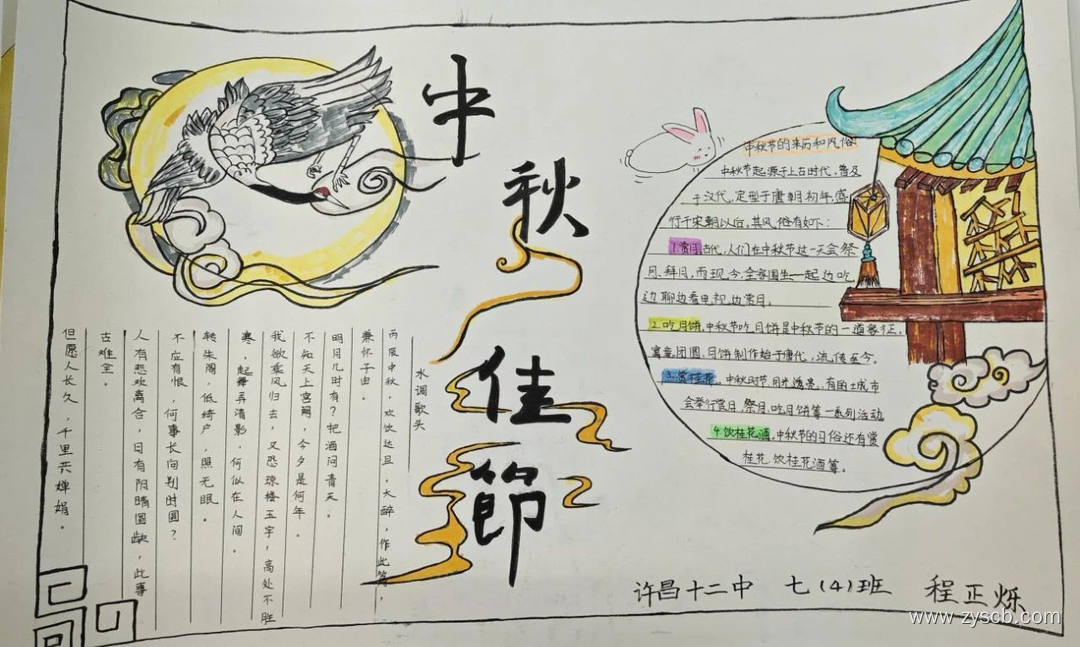 中秋佳節
水调歌头
丙辰中秋，欢饮达旦，大醉，作此篇，
兼怀子由。
明月几时有？把酒问青天。
不知天上宫阙，今夕是何年。
我欲乘风归去，又恐琼楼玉宇，高处不胜
寒，起舞弄清影，何似在人间。
转朱阁，低绮户，照无眠。
不应有恨，何事长向别时圆？
人有悲欢离合，月有阴晴圆缺，此事
古难全。
但愿人长久，千里共婵娟。
中秋节的来历和风俗
中秋节起源于上古时代，普及
于汉代，定型于唐朝初年，盛
行于宋朝以后，其风俗有如下：
1.赏月古代，人们在中秋节这一天会祭
月、拜月，而现今会家围坐一起边吃
边聊边看电视，边赏月。
2.吃月饼，中秋节吃月饼是中秋节的一道象征，
寓意团圆、月饼制作始于唐代，流传至今。
3.赏桂花，中秋时节月光透亮，有的城市
会举行赏月、祭月、吃月饼等一系列活动
4.饮桂花酒，中秋节的习俗还有赏
桂花，饮桂花酒等。
许昌十二中 七（4）班 程正烁
www.zyscb.com